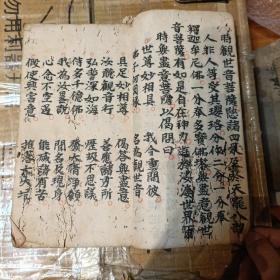 時觀世音菩薩愍諸四眾及於天龍八部
人非人等受其瓔珞分作二分一分奉
釋迦牟尼佛一分奉多寶佛塔無盡意觀世
音菩薩有如是自在神力遊於娑婆世界爾
時無盡意菩薩以偈問曰
世尊妙相具　我今重問彼
佛子何因緣　名為觀世音
具足妙相尊　偈答無盡意
汝聽觀音行　善應諸方所
弘誓深如海　歷劫不思議
侍多千億佛　發大清淨願
我為汝略說　聞名及見身
心念不空過　能滅諸有苦
假使興害意　推落大火坑
勿用利